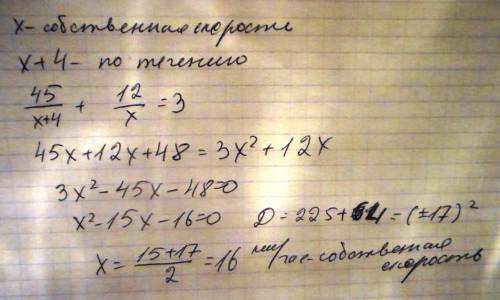 x - собственная скорость
x+4 - по течению
45/(x+4) + 12/x = 3
45x+12x+48 = 3x²+12x
3x²-45x-48=0
x²-15x-16=0 D=225+64=(±17)²
x = (15+17)/2 = 16 км/час - собственная скорость